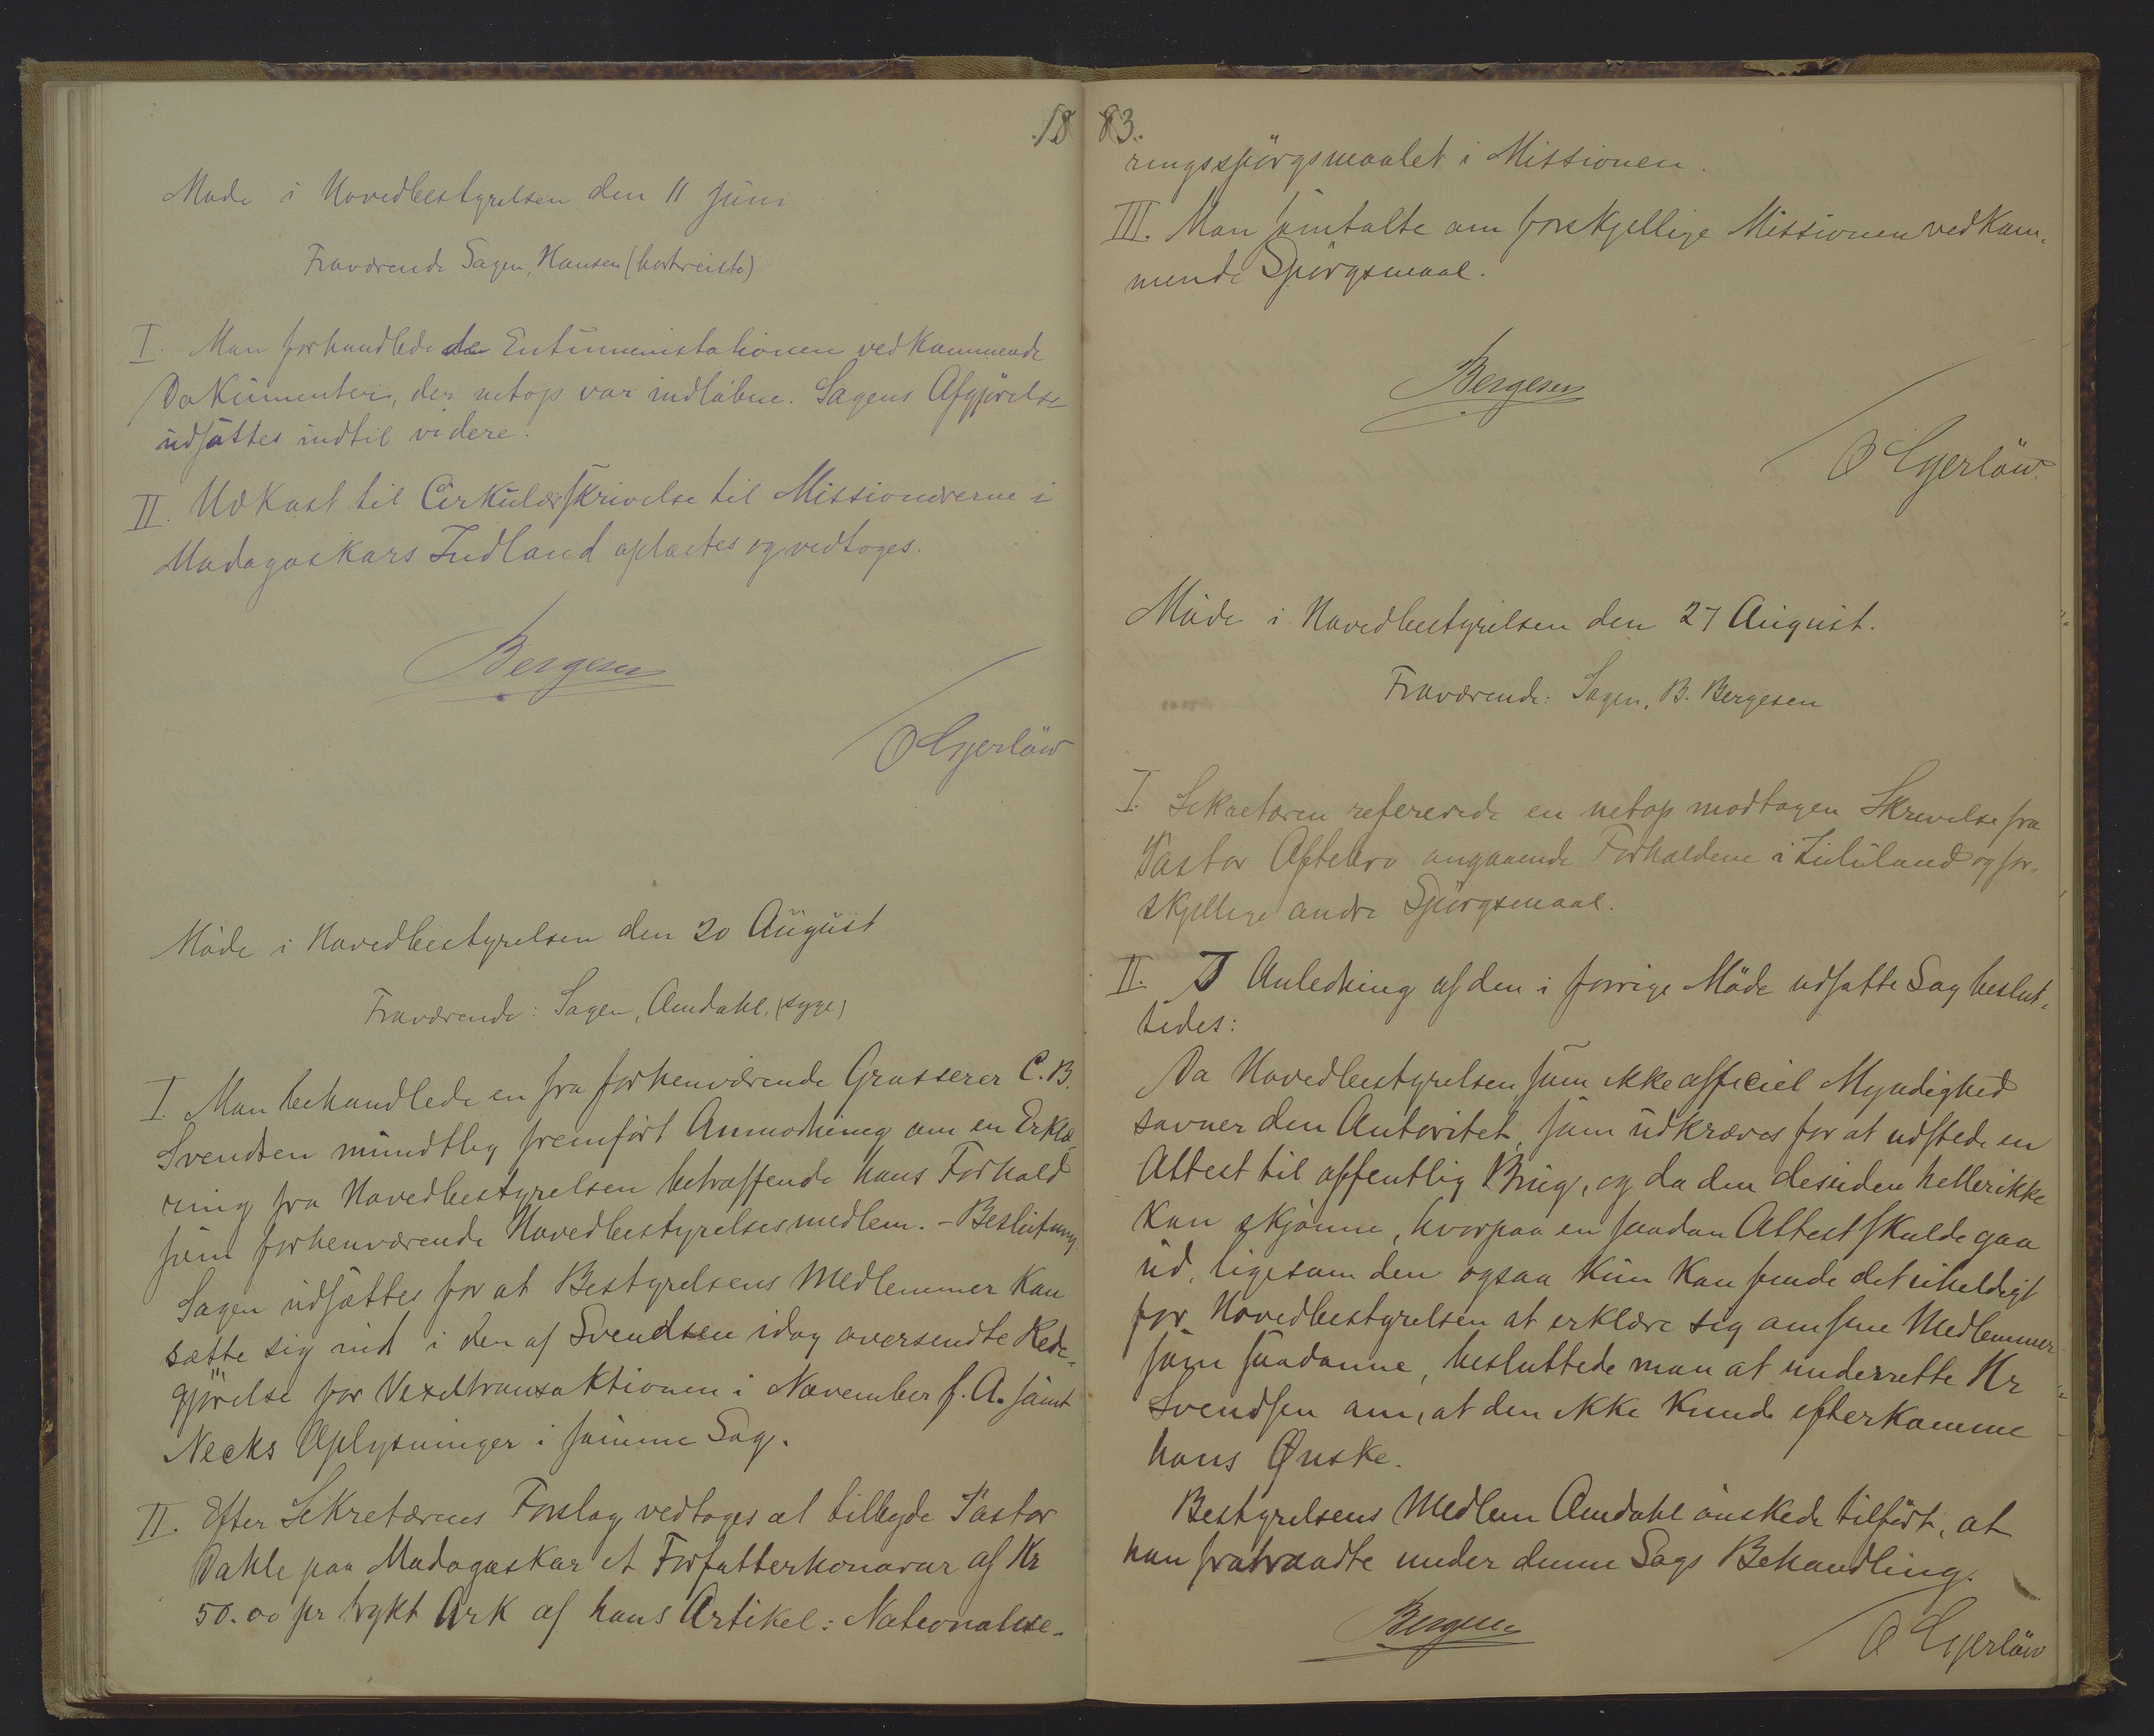 1883.
Møde i Hovedbestyrelsen den 11 Juni
Fraværende Sagen, Hansen (bortreiste)
I. Man forhandlede de Entumenistationen vedkommende
Dokumenter, der netop var indløbne. Sagens Afgjørelse
udsattes indtil videre.
II. Udkast til Cirkulærskrivelse til Missionærerne i
Madagaskars Indland oplæstes og vedtoges.
Bergesen
O Gjerløw
Møde i Hovedbestyrelsen den 20 August
Fraværende: Sagen, Amdahl, (syge)
I. Man behandlede en fra forhenværende Grosserer C. B.
Svendsen mundtlig fremført Anmodning om en Erklæ
ring fra Hovedbestyrelsen betræffende hans Forhold
som forhenværende Hovedbestyrelsesmedlem. - Beslutning
Sagen udsættes for at Bestyrelsens Medlemmer kan
sætte sig ind i den af Svendsen idag oversendte Rede-
gjørelse for Vexeltransaktionen i November f. A. samt
Necks Oplysninger i samme Sag.
II. Efter Sekretærens Forslag vedtoges at tilbyde Pastor
Dahle paa Madagaskar et Forfatterhonorar af Kr
50.00 pr trykt Ark af hans Artikel: Nationalise-
ringsspørgsmaalet i Missionen.
III. Man samtalte om forskjellige Missionen vedkom-
mende Spørgsmaal.
Bergesen
O Gjerløw.
Møde i Hovedbestyrelsen den 27 August.
Fraværende: Sagen, B. Bergesen
I. Sekretæren refererede en netop modtagen Skrivelse fra
Pastor Oftebro angaaende Forholdene i Zululand og for-
skjellige andre Spørgsmaal.
II. I Anledning af den i forrige Møde udsatte Sag beslut-
tedes:
Da Hovedbestyrelsen som ikke officiel Myndighed
savner den Autoritet, som udkræves for at udstede en
Attest til offentlig Brug, og da den desuden heller ikke
kan skjønne, hvorpaa en saadan Attest skulde gaa
ud, ligesom den ogsaa kun kan finde det uheldigt
for Hovedbestyrelsen at erklære sig om sine Medlemmer
som saadanne, besluttede man at underrette Hr
Svendsen om, at den ikke kunde efterkomme
hans Ønske.
Bestyrelsens Medlem Amdahl ønskede tilført, at
han fratraadte under denne Sags Behandling.
Bergesen
O Gjerløw